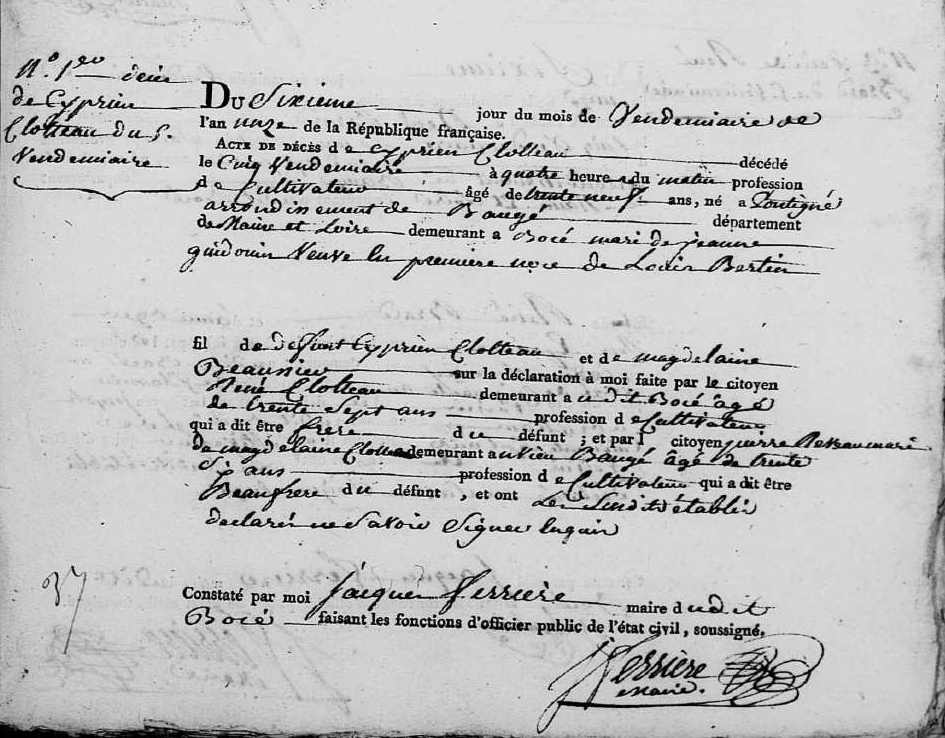 N.º 1.er décès
de Cyprien
Clotteau du 5.
Vendemiaire
DU Sixieme jour du mois de Vendemiaire de
l'an onze de la République française.
ACTE DE DÉCÈS de Cyprien Clotteau décédé
le Cinq Vendemiaire à quatre heures du matin profession
de Cultivateur âgé de trente neuf ans, né a Pontigné
arrondissement de Baugé département
de Maine et Loire demeurant a Bocé mari de jeanne
guidouin Veuve En premiere noce de Louis Bertin
fil de deffunt Cyprien Clotteau et de magdelaine
Beaunier sur la déclaration à moi faite par le citoyen
René Clotteau demeurant au dit Bocé âgé
de trente Sept ans profession de Cultivateur
qui a dit être frere du défunt ; et par l citoyen pierre mari
de magdelaine Clotteau demeurant au vieu Baugé âgé de trente
ans profession de Cultivateur qui a dit être
Beaufrere du défunt , et ont Les Susdits établis
declarés ne Savoir Signer
37
Constaté par moi Jacques Ferriere maire dudit
Bocé faisant les fonctions d'officier public de l'état civil, soussigné,
Ferrière
maire.